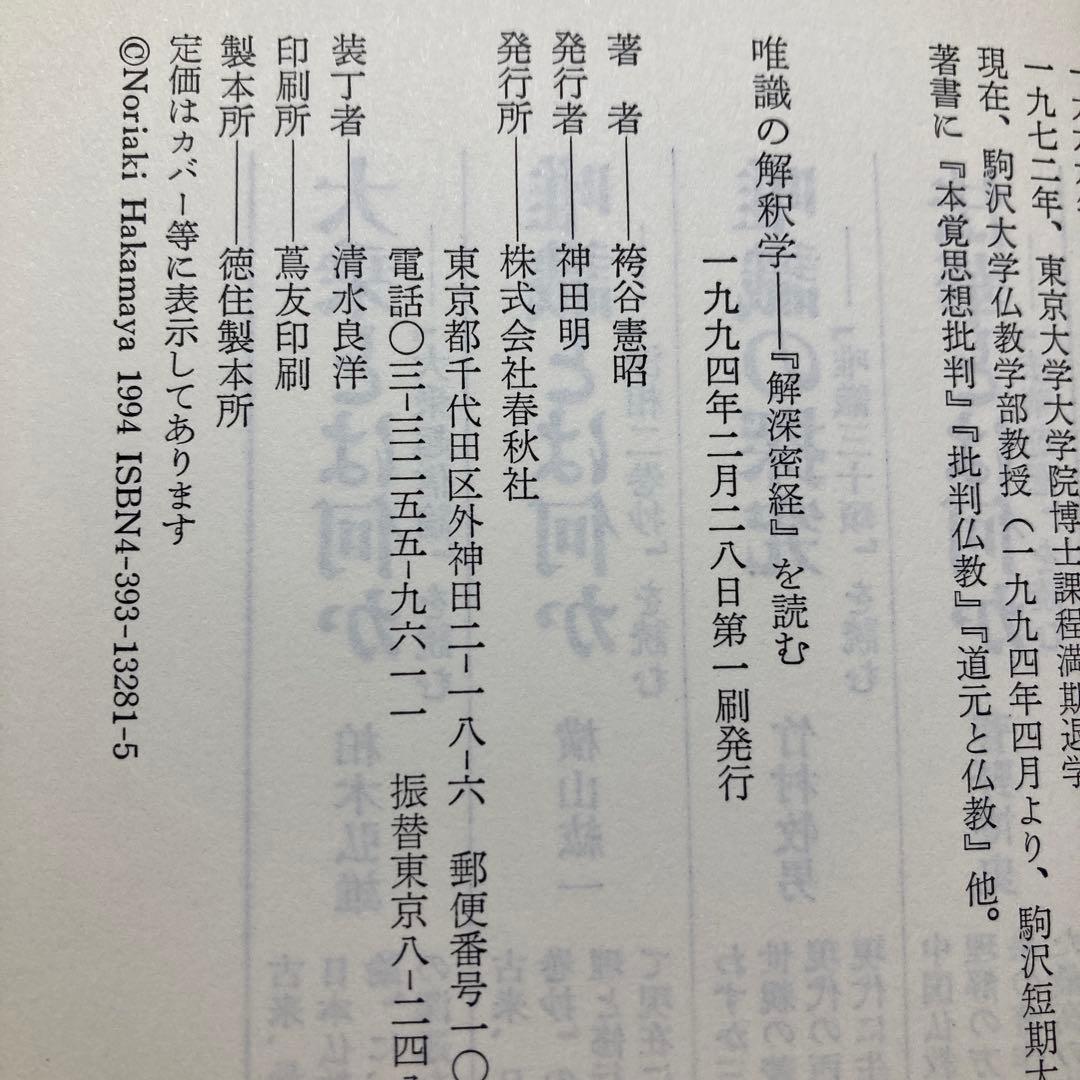 一九七二年、東京大学大学院博士課程満期退学
現在、駒沢大学仏教学部教授(一九九四年四月より、駒沢短期大
著書に『本覚思想批判』『批判仏教』『道元と仏教』他。
唯識の解釈学――『解深密経』を読む
一九九四年二月二八日第一刷発行
著 者――袴谷憲昭
発行者――神田明
発行所――株式会社春秋社
東京都千代田区外神田二-一八-六 郵便番号一〇
電話〇三-三二五五-九六一一 振替東京八-二四
装丁者――清水良洋
印刷所――蔦友印刷
製本所――徳住製本所
定価はカバー等に表示してあります
©Noriaki Hakamaya 1994 ISBN4-393-13281-5